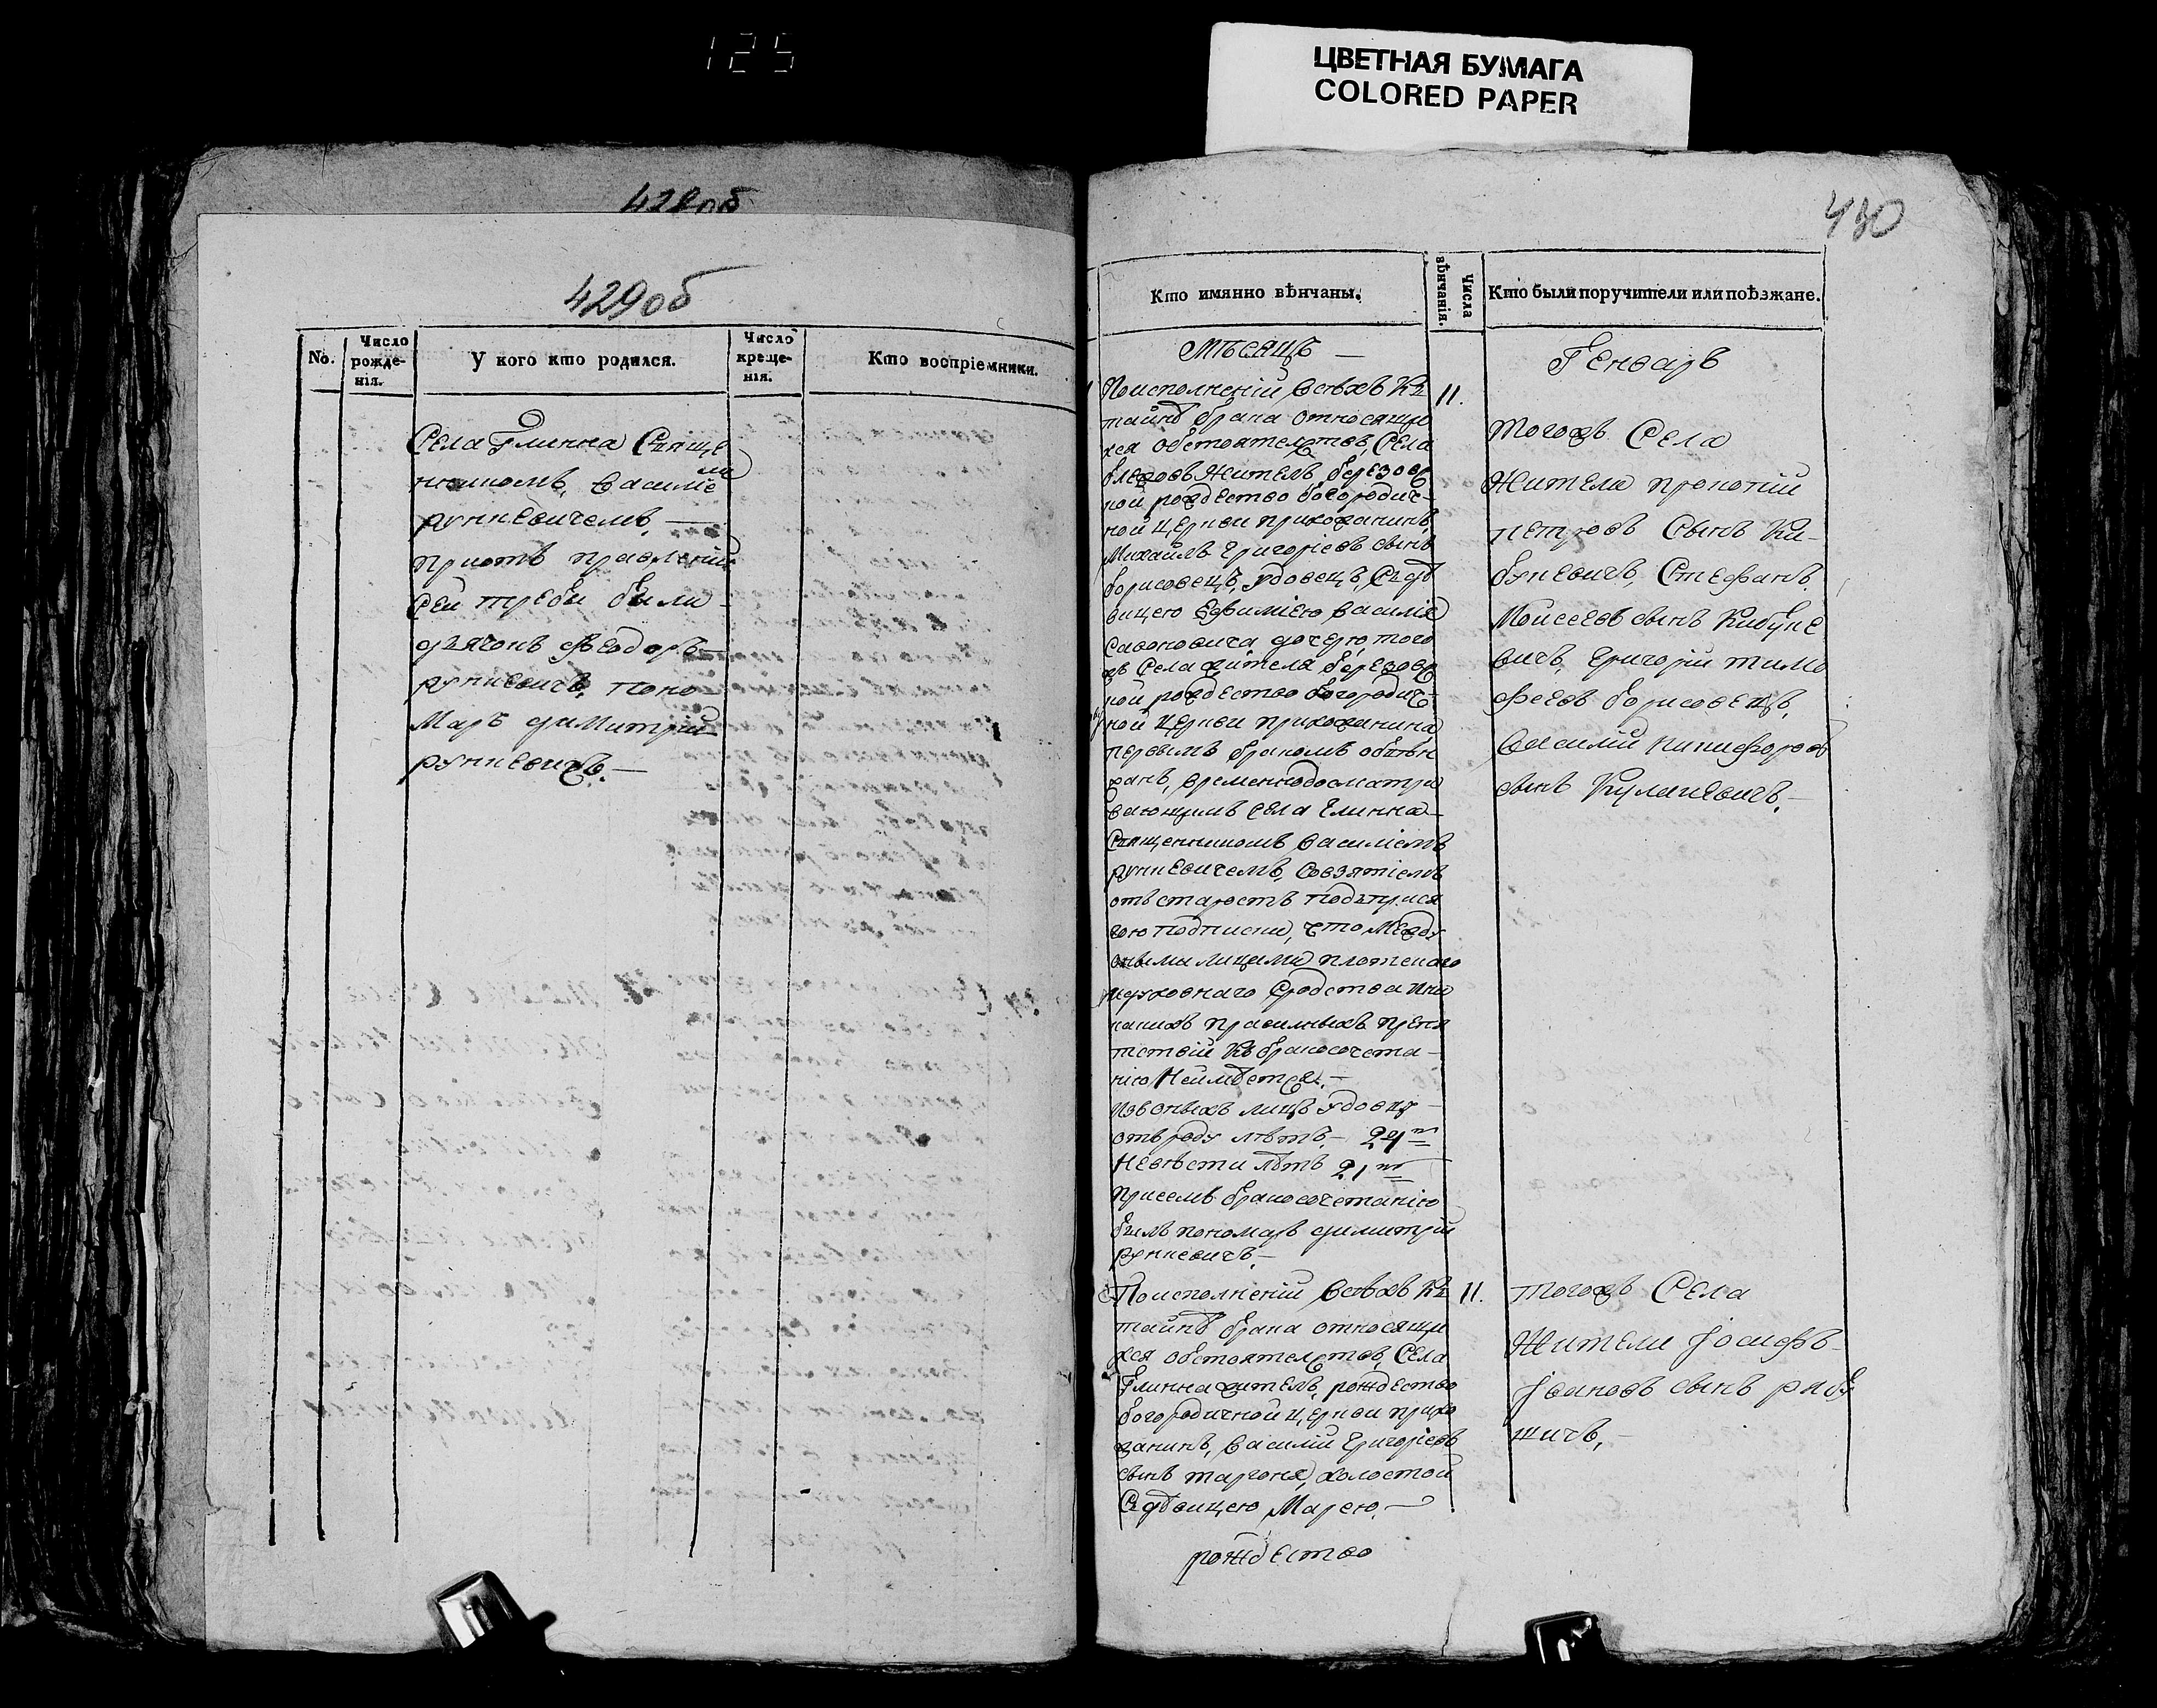 125
ЦВЕТНАЯ БУМАГА
COLORED PAPER
429об
No.
Число рожде-нія.
У кого кто родился.
Число креще-нія.
Кто воспріемники.
Села Глинна Свяще
нникомъ, Василіе
мъ
рункевичемъ, —
приотправленіи
сей требы были
дьячокъ Ѳеодоръ
рункевичъ, поно
Маръ димитрій
рункевичъ. —
430
Кто имянно вѣнчаны.
Числа вѣнчанія.
Кто были поручители или поѣзжане.
Мѣсяцъ —
Генварь
Поисполненіи Всѣхъ Къ
11.
тайнѣ брака относящи
хся обстоятелствъ, Села
Житель березовс
кой рождество богородич-
ной церкви прихожанинъ,
Михаилъ Григоріевъ сынъ
борисовецъ, удовецъ, Съдѣ
вицею Ефиміею Василія
дочерю, того
жъ Села жителя березовс
кой рождество богородич-
ной церкви прихожанина
первымъ бракомъ обвѣн
чанъ, временнодосматри
вающимъ села Глинна
Священникомъ Василіемъ
рункевичемъ, Совзятіемъ
отъ старостъ подъприся
гою подписки, что Между
оными лицами плотскаго
идуховнаго Сродства ини
какихъ правилныхъ препя
тствій Къ бракосочета-
нію Неимѣется. —
Изъ оныхъ лицъ удовцу —
отъ роду лѣтъ. — 24 м
Невѣсти лѣтъ 21 м
присемъ бракосочетаніи
былъ пономарь димитрій
рункевичъ. —
Тогожъ Села
Жители прокопій
петровъ Сынъ Ки-
буневичъ, Стефанъ
Моисеевъ сынъ Кибуне
вичъ, Григорій тимо
феевъ борисовецъ,
Василій никифоровъ
сынъ —
Поисполненіи Всѣхъ Къ
11.
тайнѣ брака относящи
хся обстоятелствъ, Села
Глинна житель, рождество
богородичной церкви прихо
жанинъ, Василій Григоріевъ
сынъ холостой
Съдѣвицею Марею, —
рождество
тогожъ Села
Жители Іосифъ
Івановъ сынъ